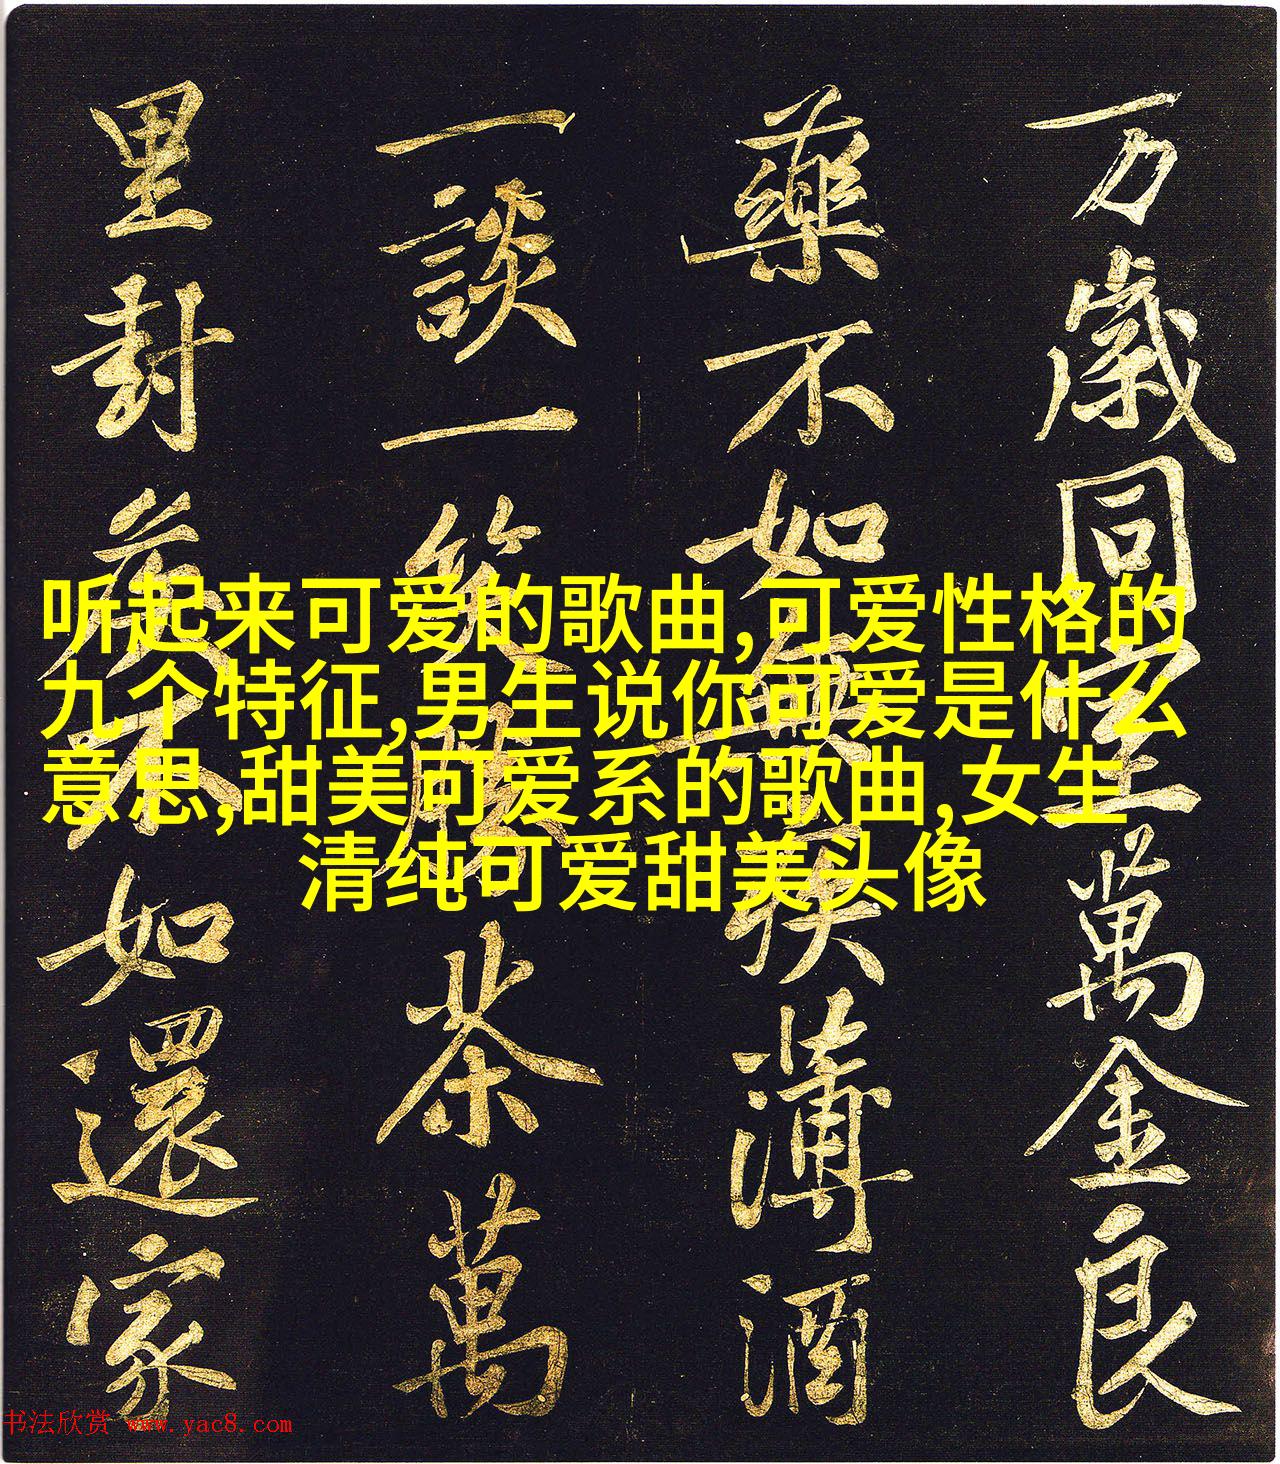 万歲同萬金良
藥不如無疾薄酒
一談一笑勝茶萬
里封侯不如還家
听起来可爱的歌曲,可爱性格的
九个特征,男生说你可爱是什么
意思,甜美可爱系的歌曲,女生
清纯可爱甜美头像
书法欣赏 www.yac8.com